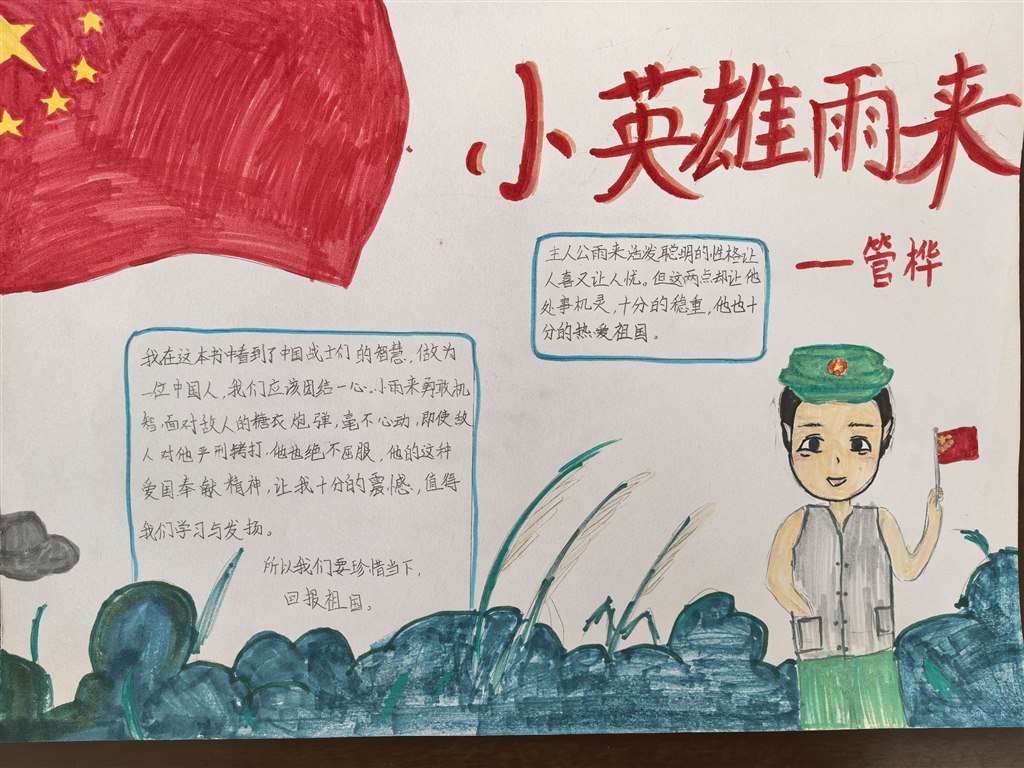 小英雄雨来
一管桦
主人公雨来活泼聪明的性格让
人喜又让人忧。但这两点却让他
处事机灵,十分的稳重,他也十
分的热爱祖国。
我在这本书中看到了中国战士们的智慧,做为
一位中国人,我们应该团结一心。小雨来勇敢机
智面对敌人的糖衣炮弹,毫不心动,即使敌
人对他严刑拷打,他也绝不屈服,他的这种
爱国奉献精神,让我十分的震憾,值得
我们学习与发扬。
所以我们要珍惜当下,
回报祖国。